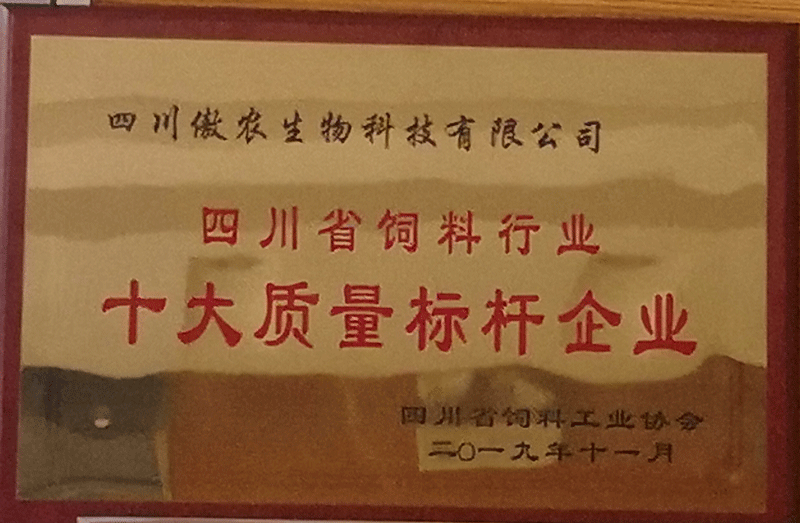 四川傲农生物科技有限公司
四川省饲料行业
十大质量标杆企业
四川省饲料工业协会
二〇一九年十一月